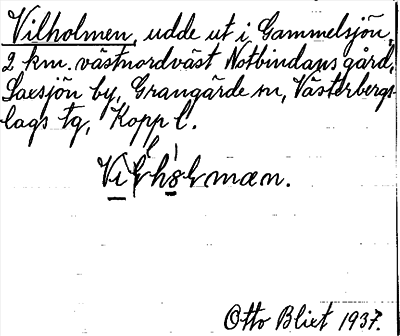 Vilholmen, udde ut i Gammelsjön,
2 km. västnordväst Notbindars gård,
Saxsjön by, Grangärde sn, Västerbergs-
lags tg, Kopp l.
Otto Blixt 1937.